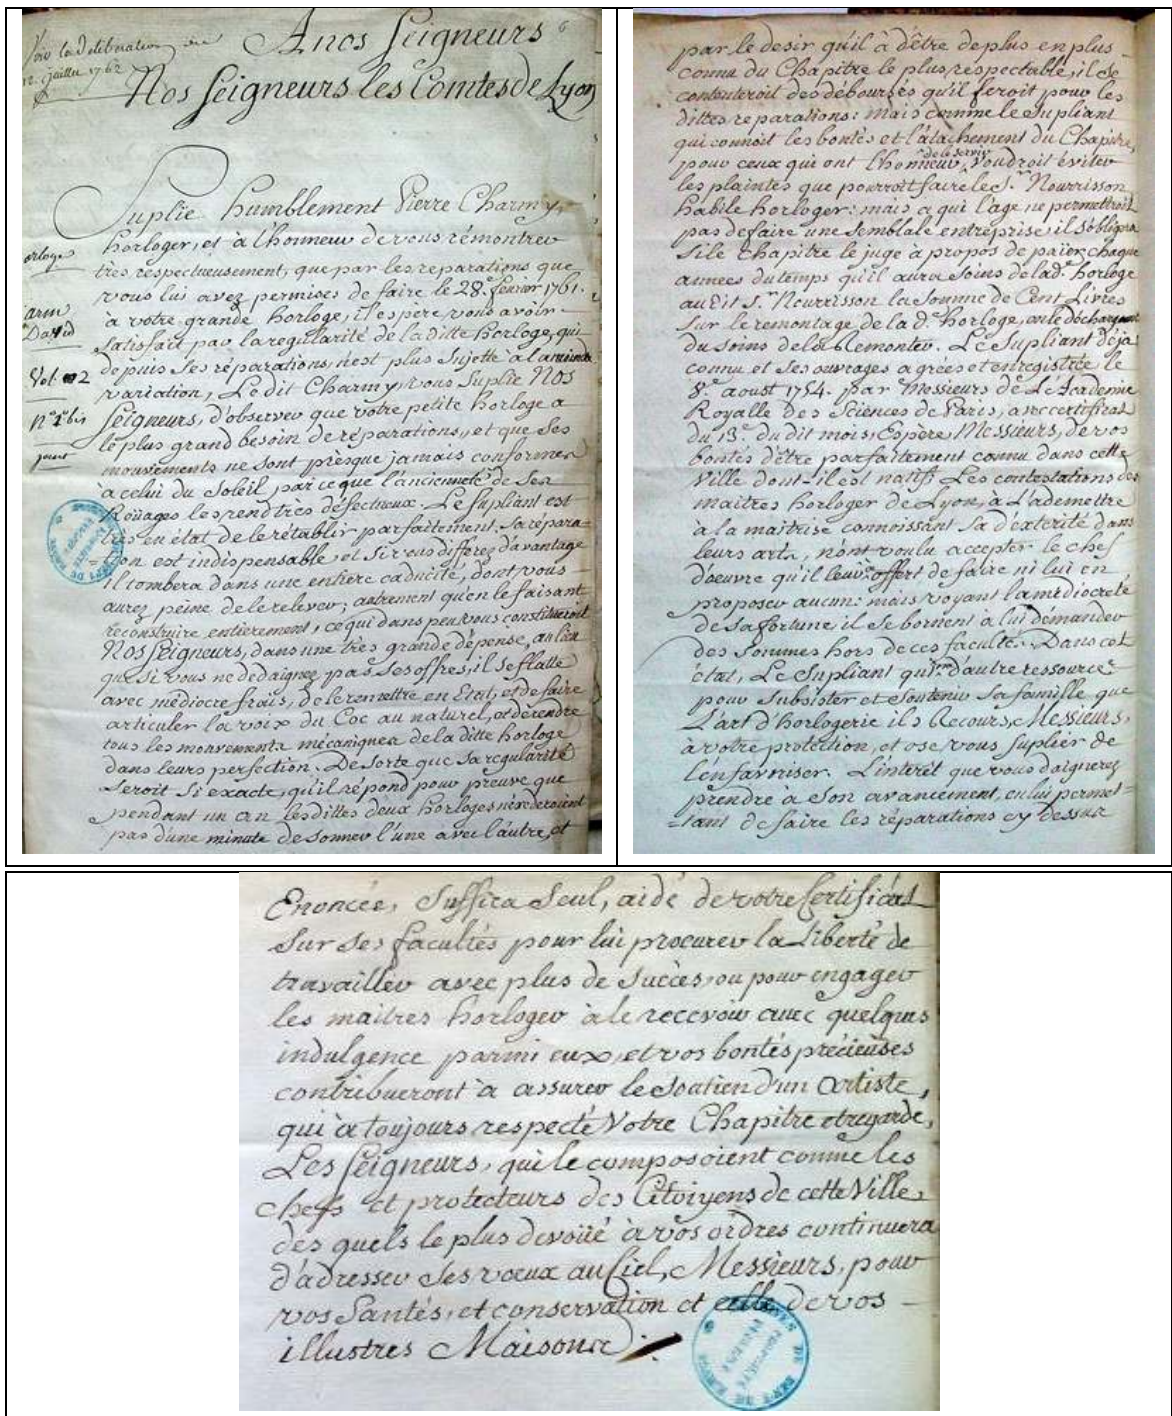 Voir la deliberation du
12. Juillet 1762
A nos Seigneurs
6
Nos Seigneurs les Comtes de Lyon
Suplie humblement Pierre Charmy,
horloger, et à l'honneur de vous rémontrer
très respectueusement, que par les reparations que
vous lui avez permises de faire le 28.e fevrier 1761.
à votre grande horloge, il espere vous avoir
satisfait par la regularité de la ditte horloge, qui
depuis ses réparations, n'est plus sujette à la moindre
variation, Le dit Charmy, vous suplie Nos
Seigneurs, d'observer que votre petite horloge a
le plus grand besoin de réparations, et que ses
mouvements ne sont présque jamais conformes
à celui du Soleil, parce que l'ancienneté de ses
Roüages les rend très défectueux. Le supliant est
très en état de le rétablir parfaitement. Sa répara=
=tion est indispensable, et si vous differez d'avantage
Il tombera dans une entiere caducité, dont vous
aurez peine de le relever; autrement qu'en le faisant
reconstruire entierement, ce qui dans peu vous constitueroit
Nos Seigneurs, dans une très grande dépense, au lieu
que si vous ne dédaignez pas ses offres, il se flatte
avec médiocre frais, de le remettre en Etat, et de faire
articuler la voix du Coc au naturel, et de rendre
tous les mouvements mécaniques de la ditte horloge
dans leurs perfection. De sorte que sa regularité
seroit si exacte, qu'il répond pour preuve que
pendant un an les dittes deux horloges
pas d'une minute de sonner l'une avec l'autre, et
orloge
arm
David
Vol. 2
n° 1 bis
par le desir qu'il à d'être de plus en plus
connu du Chapitre le plus respectable, il se
contenteroit des débourses qu'il feroit pour les
dittes reparations: mais comme le supliant
qui connoit les bontés et l'atachement du Chapitre,
pour ceux qui ont l'honneur de le servir, voudroit éviter
les plaintes que pourroit faire le S.r Nourrisson
habile horloger: mais a qui l'age ne permettroit
pas de faire une semblale entreprise, il s'obligera
si le chapitre le juge à propos de païer chaque
annees du temps qu'il aura soins de lad.e horloge
au dit S.r Nourrisson la somme de Cent Livres
sur le remontage de la d.e horloge, en le déchargeant
du soins de la Remonter. Le Supliant déja
connu et ses ouvrages agrées et enregistrée le
8.e aoust 1754. par Messieurs de L'Academie
Royalle des Sciences de Paris, avec certificat
du 13.e du dit mois, Espère, Messieurs, de vos
bontés d'être parfaitement connu dans cette
Ville dont il est natif. Les contestations des
maitres horloger de Lyon, à L'ademettre
à la maitrise connoissant sa d'exterité dans
leurs arts, n'ont voulu accepter le chef
d'oeuvre qu'il leur offert de faire ni lui en
proposer aucun: mais voyant la médiocreté
de sa fortune il se bornent a lui démander
des sommes hors de ces faculté. Dans cet
état, Le Supliant qui n'a d'autre ressource
pour subsister et soutenir sa famille que
L'art d'horlogerie il a Recours, Messieurs,
à votre protection, et ose vous suplier de
l'en favoriser. L'interêt que vous daignerez
prendre à son avancement, en lui permet=
=tant de faire les réparations cy dessus
Enoncée, suffira seul, aidé de votre Certificat
sur ses facultés pour lui procurer la Liberté de
travailler avec plus de succès, ou pour engager
les maitres horloger à le recevoir avec quelques
indulgence parmi eux, et vos bontés précieuses
contribueront à assurer le soutien d'un artiste,
qui à toujours respecté Votre Chapitre et regardé,
Les Seigneurs, qui le composoient comme les
chefs et protecteurs des Citoyens de cette Ville,
des quels le plus devoüé à vos ordres continuera
d'adresser ses vœux au Ciel, Messieurs, pour
vos Santés, et conservation et celle de vos
illustres Maisons.